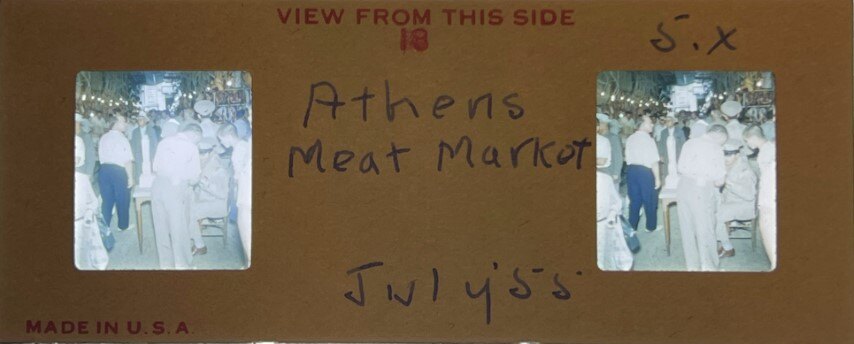 VIEW FROM THIS SIDE
18
5.x
Athens
Meat Markot
July '55
MADE IN U.S.A.